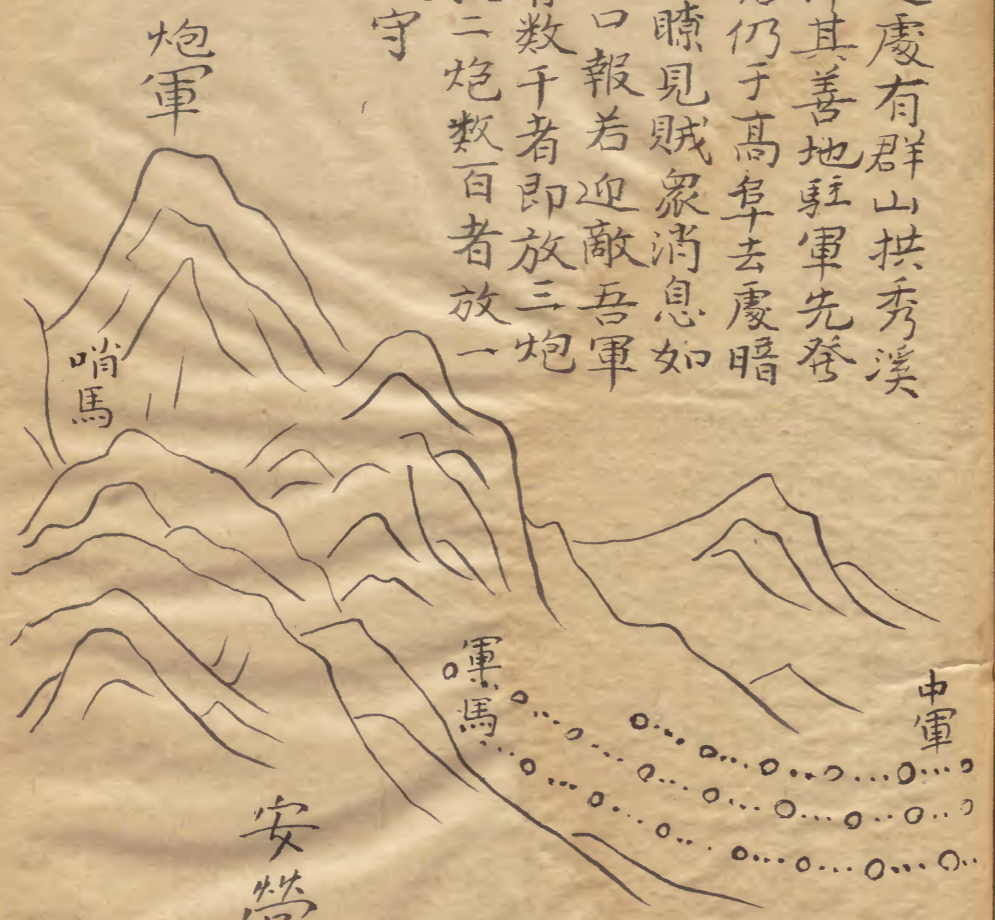 處有群山拱秀溪
其善地駐軍先發
仍于高阜去處暗
瞭見賊眾消息如
口報若迎敵吾軍
数千者即放三炮
二炮数百者放一
守
炮軍
哨馬
軍馬
中軍
安營